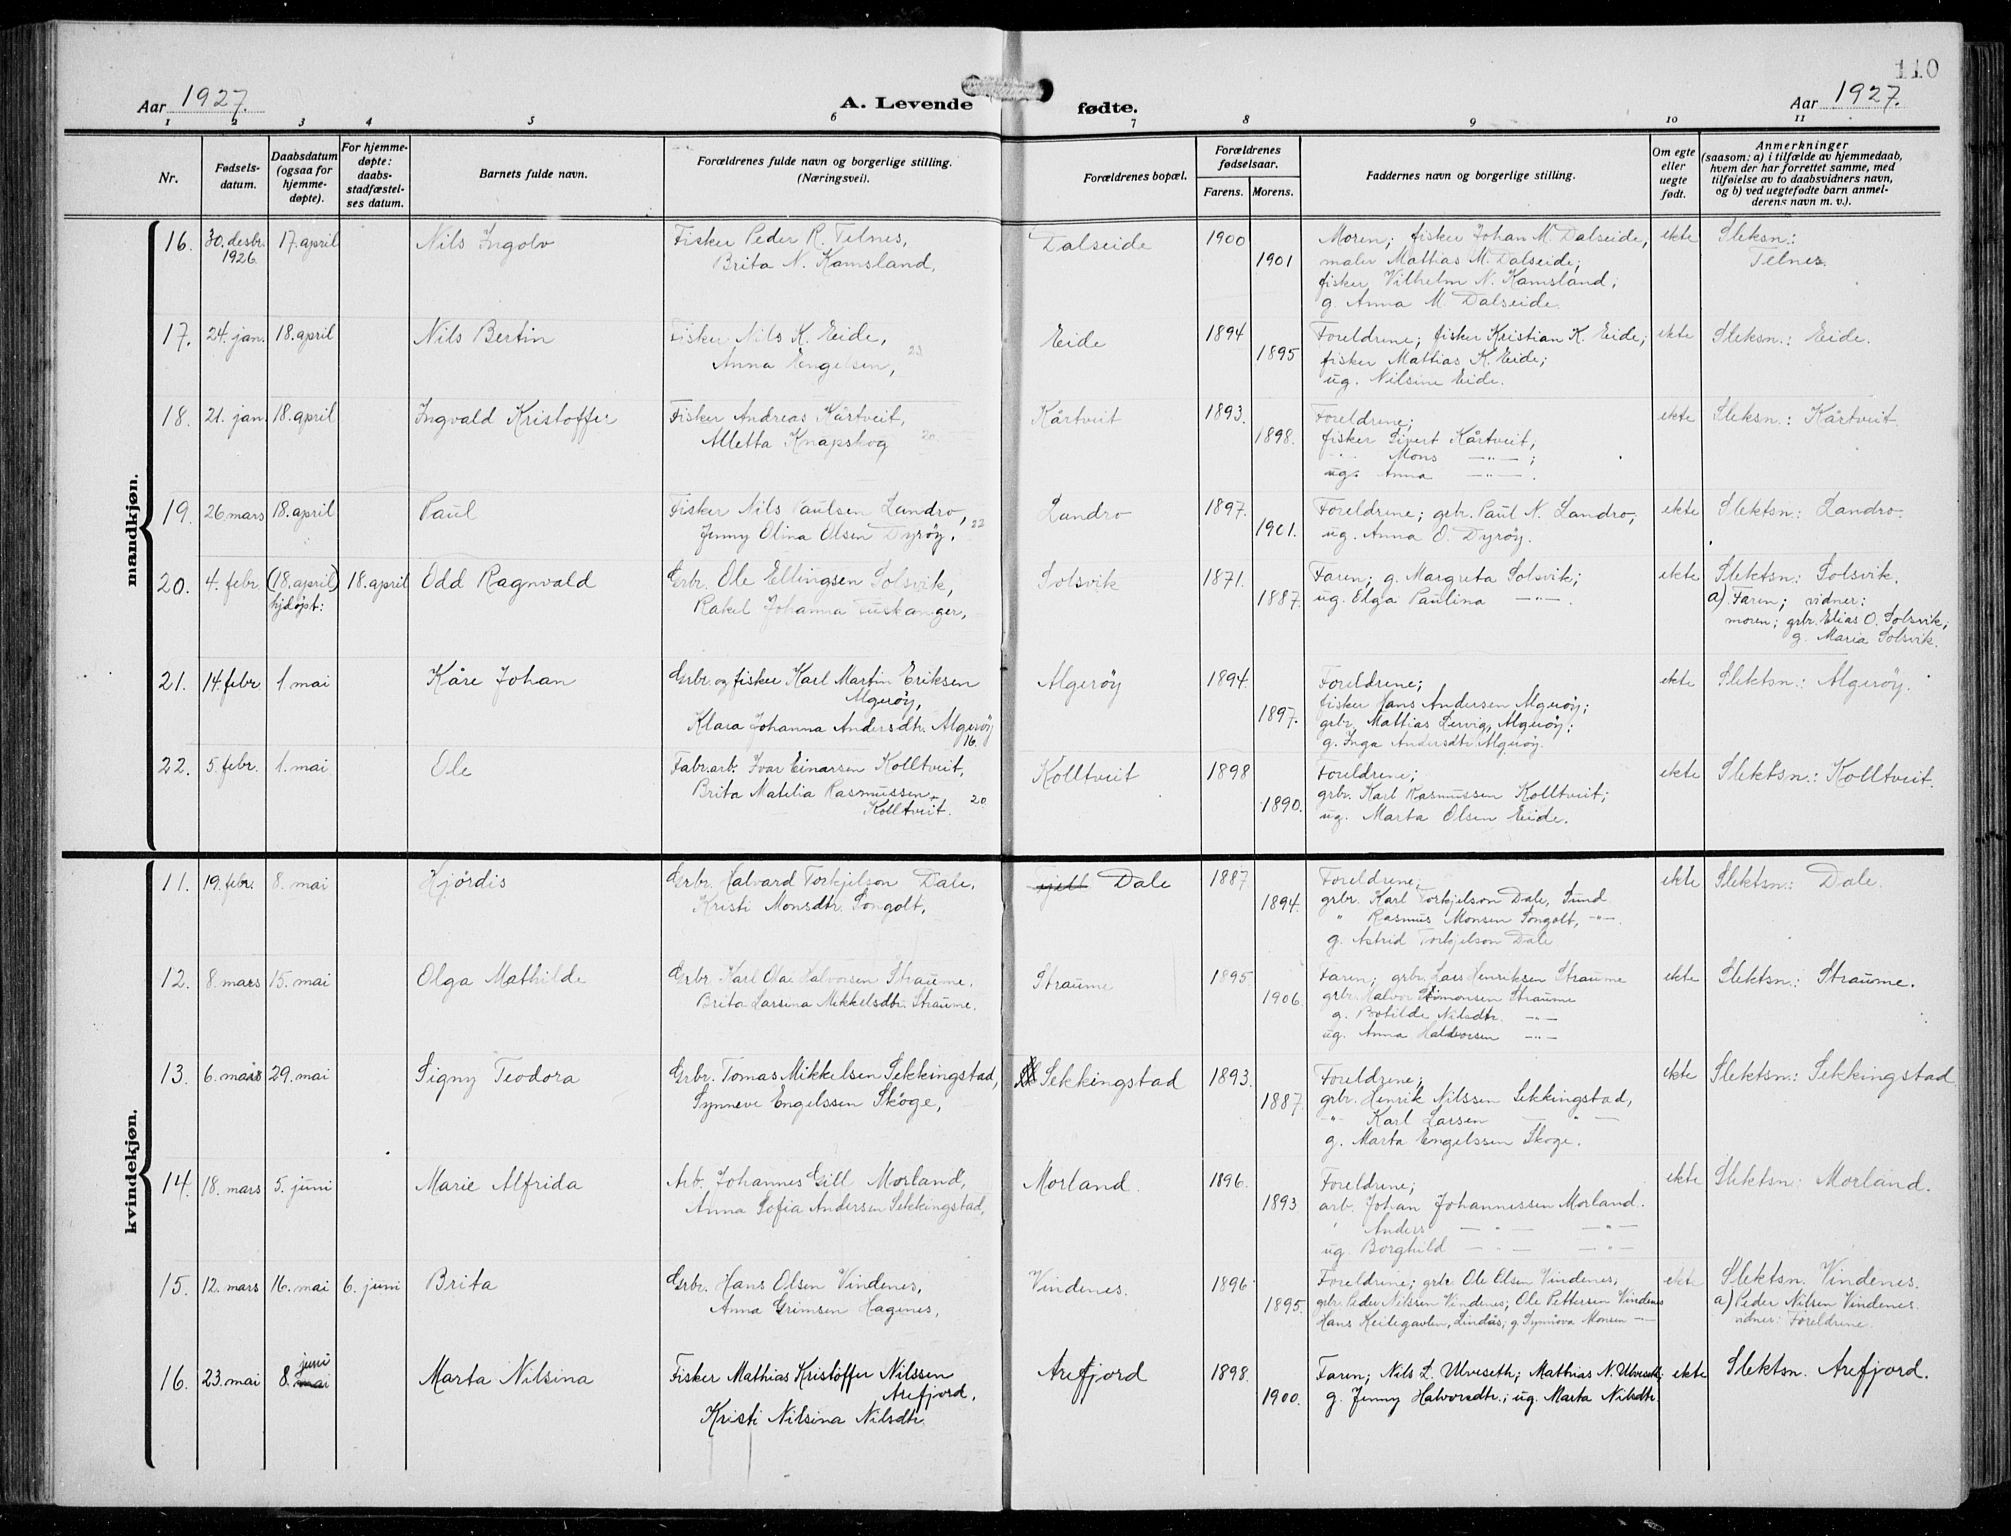 110
Aar 1927.
A. Levende fødte.
Aar 1927.
1 2 3 4 5 6 7 8 9 10 11
Nr.
Fødsels-
datum.
Daabsdatum
(ogsaa for
hjemme-
døpte).
For hjemme-
døpte:
daabs-
stadfæstel-
ses datum.
Barnets fulde navn.
Forældrenes fulde navn og borgerlige stilling.
(Næringsvei).
Forældrenes bopæl.
Forældrenes
fødselsaar.
Farens. Morens.
Faddernes navn og borgerlige stilling.
Om egte
eller
uegte
født.
Anmerkninger
(saasom: a) i tilfælde av hjemmedaab,
hvem der har forrettet samme, med
tilføielse av to daabsvidners navn,
og b) ved uegtefødte barn anmel-
derens navn m. v.).
mandkjøn.
16. 30. desbr. 17. april Nils Ingolv Fisker Peder R. Telnes, Dalseide 1900 Moren; fisker Johan M. Dalseide, ekte Sleksn.:
1926 Brita N. Kamsland, 1901 maler Mattias M. Dalseide; Telnes.
fisker Vilhelm N. Kamsland;
g. Anna M. Dalseide.
17. 24. jan. 18. april Nils Bertin Fisker Nils K. Eide, Eide 1894 Foreldrene; fisker Kristian K. Eide, ekte Sleksn.: Eide.
Anna Engelsen, 23 1895 fisker Mattias K. Eide;
ug. Nilsine Eide.
18. 21. jan 18. april Ingvald Kristoffer Fisker Andreas Kårtveit, Kårtveit 1893. Foreldrene; ekte Sleksn.: Kårtveit
Alletta Knapskog 20. 1898. fisker Sivert Kårtveit,
" Mons —"—;
ug. Anna —"—.
19. 26 mars 18. april Paul Fisker Nils Paulsen Landro, Landro 1897. Foreldrene; grbr. Paul N. Landro, ekte Slektsn: Landro.
Jenny Olina Olsen Dyrøy. 22 1901. ug. Anna O. Dyrøy.
20. 4. febr. (18. april) 18. april Odd Ragnvald Grbr. Ole Ellingsen Solsvik, Solsvik 1871. Faren; g. Margreta Solsvik; ekte Slektsn: Solsvik.
hjdøpt: Rakel Johanna Tuskanger, 1887. ug. Olga Paulina —"—. a) Faren; vidner:
moren; grbr. Elias O. Solsvik;
g. Maria Solsvik.
21. 14. febr 1. mai Kåre Johan Grbr. og fisker Karl Martin Eriksen Algerøy 1894. Foreldrene; ekte Slektsn.: Algerøy.
Algerøy, fisker Jans Andersen Algerøy;
Klara Johanna Andersdtr. Algerøy 1897. grbr. Mattias Lervig, Algerøy;
16. g. Inga Andersdtr Algerøy.
22. 5. febr. 1. mai Ole Fabr.arb. Ivar Einarsen Kolltveit, Kolltveit 1898 Foreldrene; ekte Slektsn.: Kolltveit.
Brita Matilia Rasmussen 20. 1890. grbr. Karl Rasmussen Kolltveit;
Kolltveit. ug. Marta Olsen Eide.
kvindekjøn.
11. 19. febr. 8. mai Hjördis Grbr. Halvard Torkjelson Dale, Fjell Dale 1887 Foreldrene; ekte Slektsn.: Dale.
Kristi Monsdtr. Songolt, 1894. grbr. Karl Torkjelson Dale, Sund
" Rasmus Monsen Songolt, —"—.
g. Astrid Torkjelson Dale
12. 8. mars 15. mai Olga Mathilde Grbr Karl Olai Halvorsen Straume. Straume 1895 Faren; grbr. Lars Henriksen Straume ekte Slektsn.: Straume.
Brita Larsina Mikkelsdtr. Straume. 1906. grbr. Halvor Simonsen Straume
g. Botilde Nilsdtr. —"—
ug. Anna Haldorsen —"—
13. 6. mars 29. mai Signy Teodora Grbr. Tomas Mikkelsen Sekkingstad, Sekkingstad 1893. Foreldrene; ekte Slektsn.: Sekkingstad
Synneve Engelssen Skoge, 1887. grbr. Henrik Nilssen Sekkingstad,
" Karl Larsen — " —
g. Marta Engelssen Skoge.
14. 18. mars 5. juni Marie Alfrida Arb. Johannes Gill Morland, Morland. 1896. Foreldrene; ekte Slektsn: Morland.
Anna Sofia Andersen Sekkingstad, 1893 arb. Johan Johannessen Morland.
" Anders — " — —"—
ug. Borghild — " — —"—
15. 12. mars 16. mai 6. juni Brita Grbr. Hans Olsen Vindenes, Vindenes. 1896 Foreldrene; grbr Ole Olsen Vindenes, ekte Slektsn. Vindenes.
Anna Grimsen Hagenes, 1895. grbr. Peder Nilssen Vindenes; Ole Pettersen Vindenes a) Peder Nilsen Vindenes.
Hans Lindås; g. Synnöva Monsen —"— vidner: Foreldrene.
juni
16. 23. mai 8. mai Marta Nilsina Fisker Mathias Kristoffer Nilssen Arefjord 1898. Faren; Nils L. Ulveseth; Matthias N. Ulveseth; ekte Slektsn. Arefjord.
Arefjord, 1900. g. Jenny Halvorsdtr.; ug. Marta Nilsdtr.
Kristi Nilsina Nilsdtr.